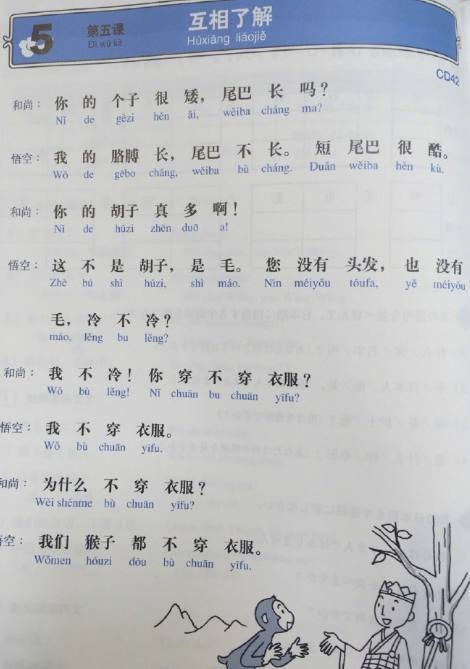 5 第五课 互相了解
Dì wǔ kè Hùxiāng liáojiě
CD42
和尚： 你 的 个子 很 矮， 尾巴 长 吗？
Nǐ de gèzi hěn ǎi, wěiba cháng ma?
悟空： 我 的 胳膊 长， 尾巴 不 长。 短 尾巴 很 酷。
Wǒ de gēbo cháng, wěiba bù cháng. Duǎn wěiba hěn kù.
和尚： 你 的 胡子 真 多 啊！
Nǐ de húzi zhēn duō a!
悟空： 这 不 是 胡子， 是 毛。 您 没有 头发， 也 没有
Zhè bú shì húzi, shì máo. Nín méiyǒu tóufa, yě méiyǒu
毛， 冷 不 冷？
máo, lěng bu lěng?
和尚： 我 不 冷！ 你 穿 不 穿 衣服？
Wǒ bù lěng! Nǐ chuān bu chuān yīfu?
悟空： 我 不 穿 衣服。
Wǒ bù chuān yīfu.
和尚： 为什么 不 穿 衣服？
Wèi shénme bù chuān yīfu?
空： 我们 猴子 都 不 穿 衣服。
Wǒmen hóuzi dōu bù chuān yīfu.